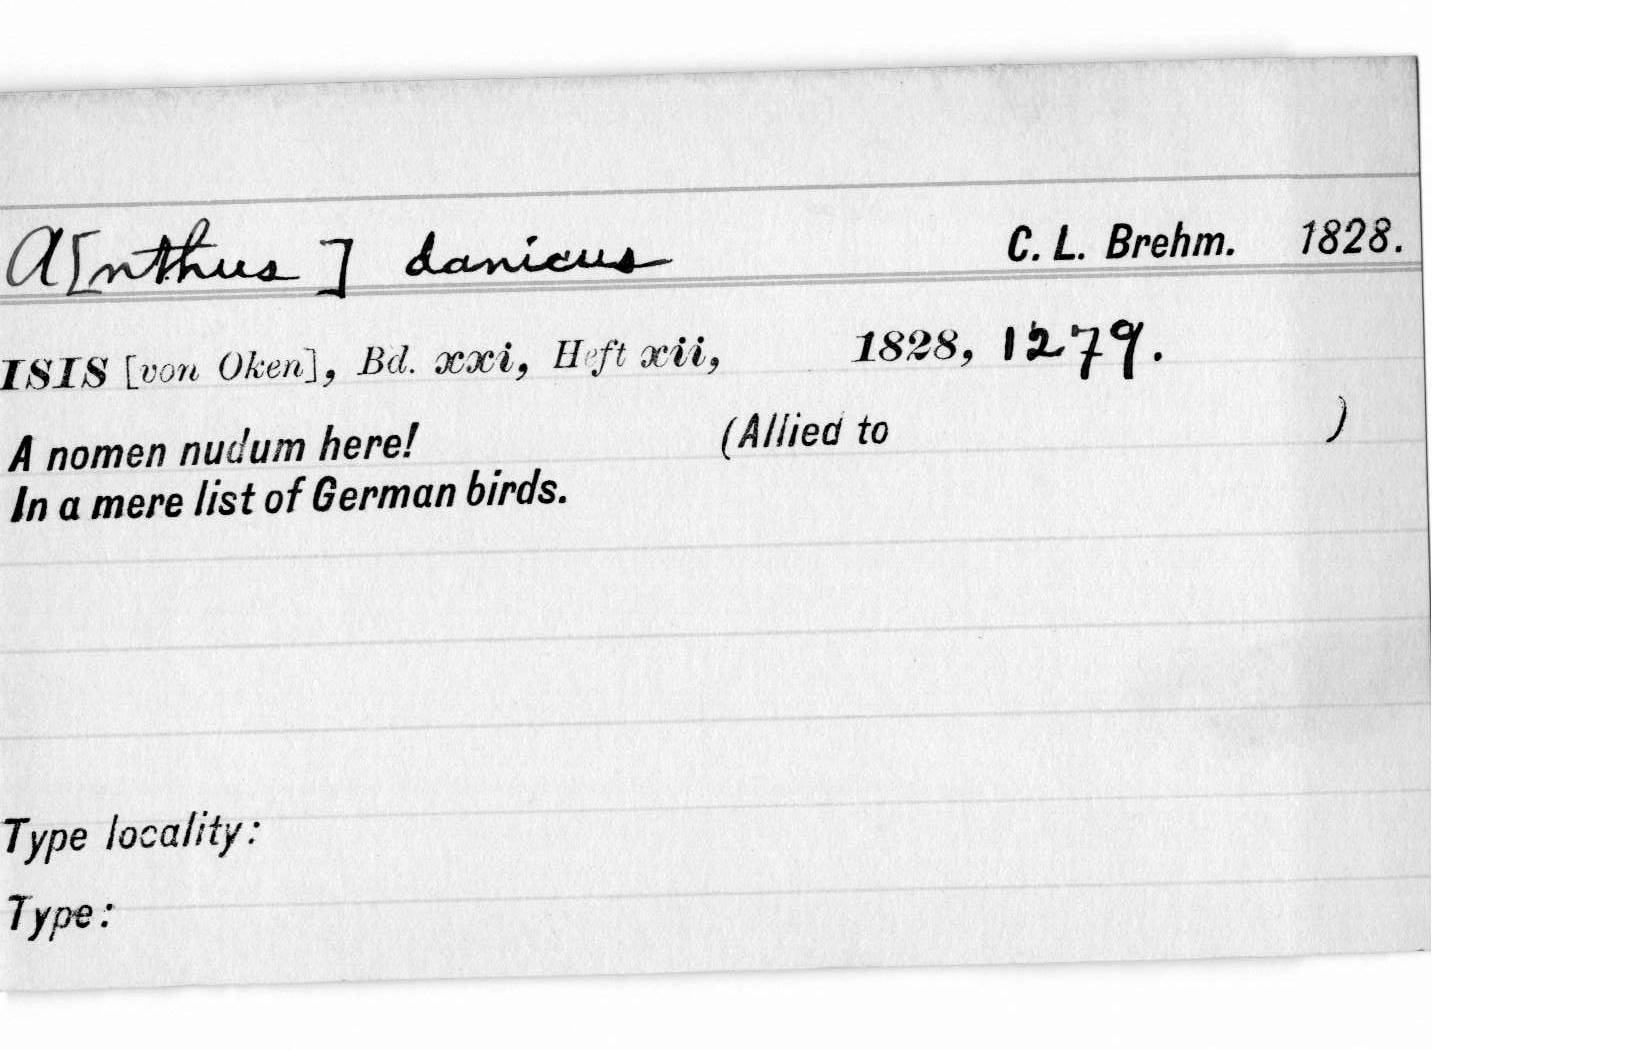 A[nthus] danicus C. L. Brehm. 1828.
ISIS [von Oken], Bd. xxi, Heft xii, 1828, 1279.
A nomen nudum here! (Allied to )
In a mere list of German birds.
Type locality:
Type: